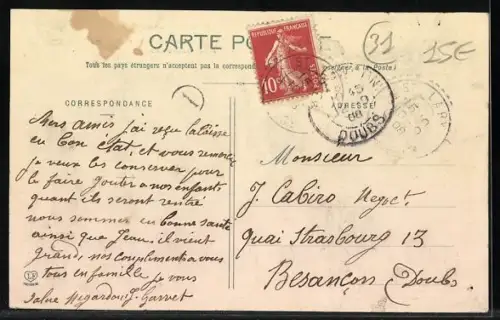 CARTE PO
31
15E
Tous les pays étrangers n'acceptent pas la correspon
à la Poste
REPUBLIQUE FRANÇAISE
10
POSTES
CORRESPONDANCE
1
ADRESSE
DOUBS
08
Mers amis j'ai reçu la caisse
en bon état, et vous remercie
je veux les conserver pour
le faire goutér a nos enfants
quant ils seront rentré
nous sommes en bonne santé
ainsi que Jean. il vient
grand, nos compliments a vous
tous en famille je vous
salue
Monsieur
J. Cabiro Negoct.
Quai Strasbourg 13
Besançon (Doubs